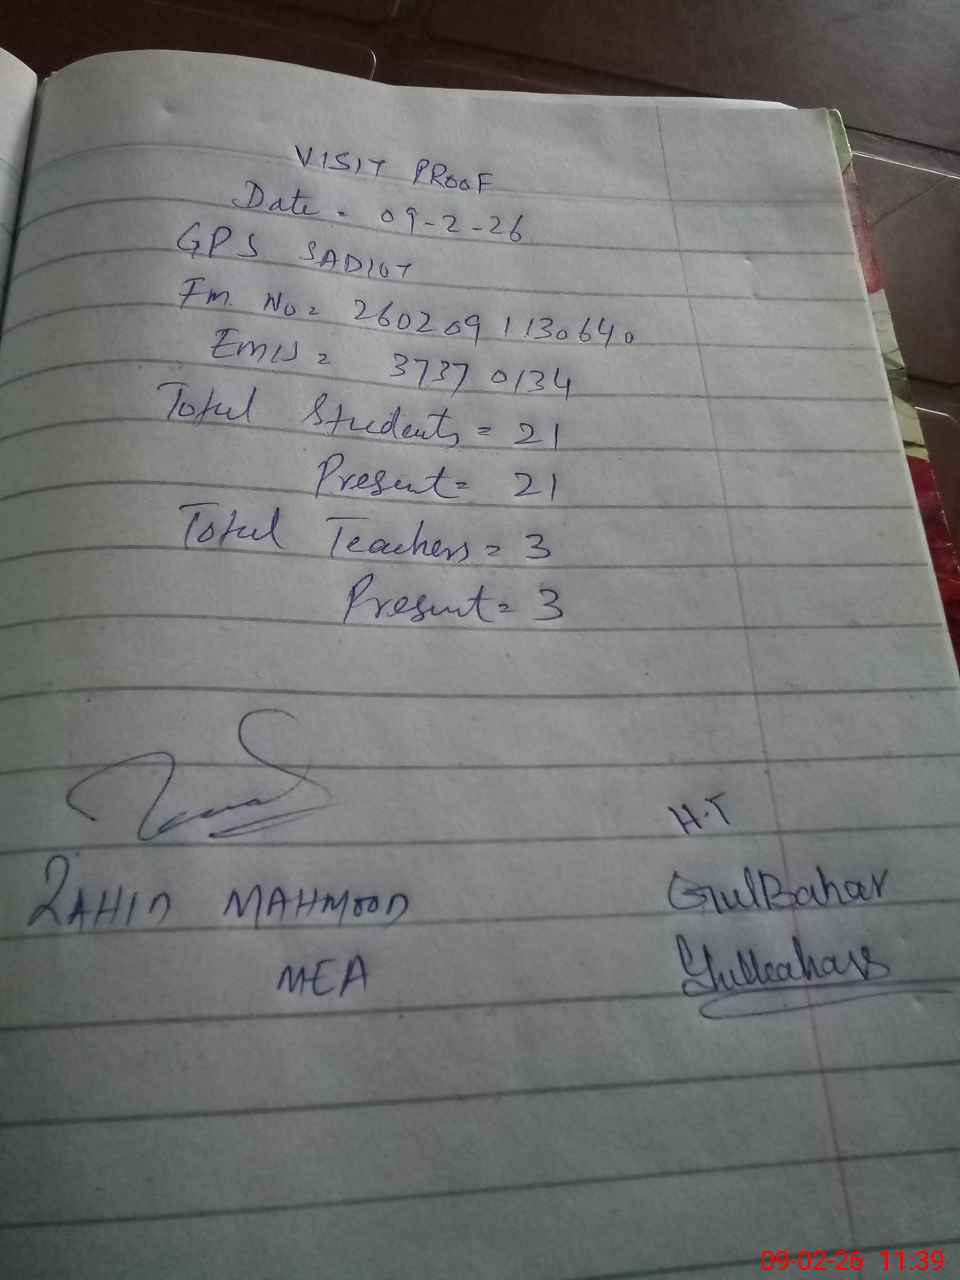 VISIT PROOF
Date = 09-2-26
GPS SADIOT
Fm. No = 2602091130640
Emis = 37370134
Total Students = 21
Present = 21
Total Teachers = 3
Present = 3
H.T
ZAHID MAHMOOD
GulBahar
MEA
Gulbahar
09-02-26 11:39